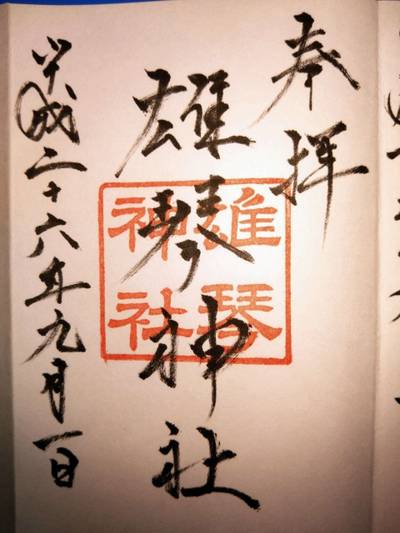 奉拝
雄琴神社
雄琴
神社
平成二十六年九月一日